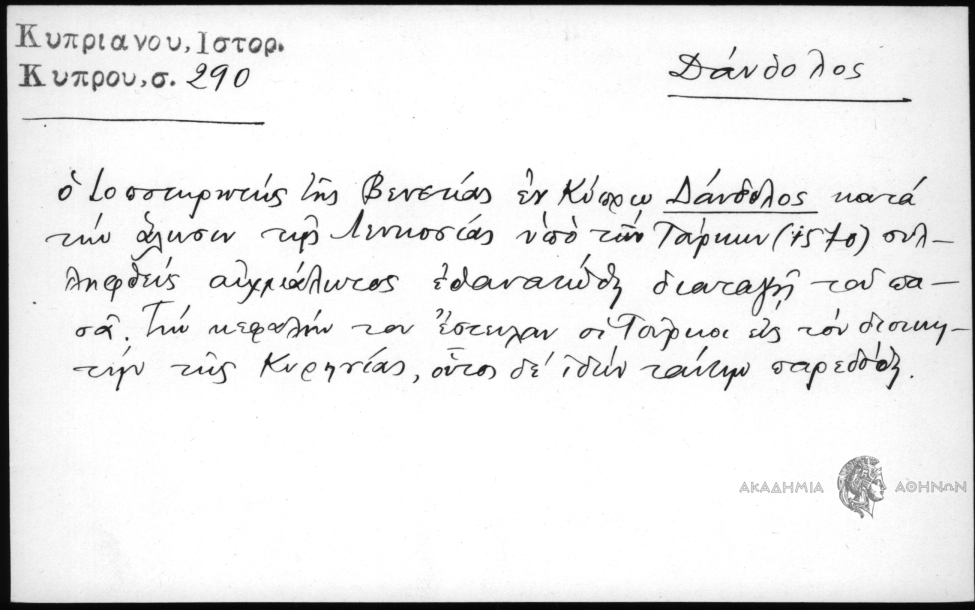 Κυπριανου, Ιστορ.
Κυπρου, σ. 290
Δάνδολος
ὁ τοποτηρητής τῆς Βενετίας ἐν Κύπρῳ Δάνδολος κατά
τήν ἅλωσιν τῆς Λευκωσίας ὑπό τῶν Τούρκων (1570) συλ-
ληφθείς αἰχμάλωτος ἐθανατώθη διαταγῇ τοῦ πα-
σᾶ. Τήν κεφαλήν του ἔστειλαν οἱ Τοῦρκοι εἰς τόν διοικη-
τήν τῆς Κυρηνίας, οὗτος δέ ἰδών ταύτην παρεδόθη.
ΑΚΑΔΗΜΙΑ ΑΘΗΝΩΝ